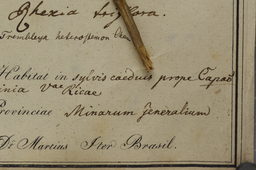 Rhexia triflora.
Trembleya heterostemon
Habitat in sylvis caeduis prope Capað
inia vae Ricae
Provinciae Minarum generalium
Dr Martius Iter Brasil.